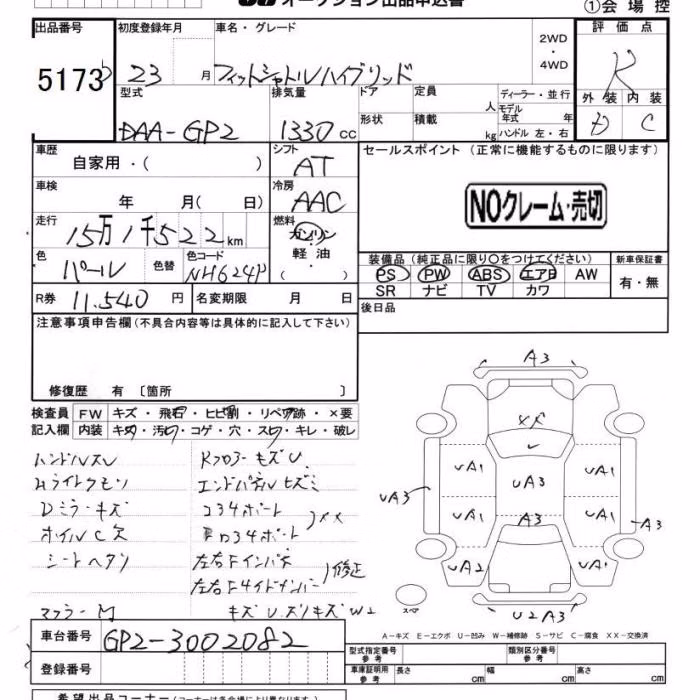 オークション出品申込書
①会場控
出品番号 初度登録年月 車名・グレード 2WD・4WD 評価点
5173 23月 フィットシャトルハイブリッド R
型式 排気量 ドア 定員 人 ディーラー・並行 外装 内装
DAA-GP2 1330cc 形状 積載 kg モデル年式 年 ハンドル 左・右 D C
車歴 自家用・( ) シフト AT セールスポイント (正常に機能するものに限ります)
車検 年 月( 日) 冷房 AAC NOクレーム・売切
走行 15万1千522km 燃料 ガソリン・軽油・( )
色 パール 色替 色コード NH624P
装備品 (純正品に限り○をつけてください) 新車保証書
PS PW ABS エアB AW 有・無
SR ナビ TV カワ
R券 11.540円 名変期限 月 日 後日品
注意事項申告欄(不具合内容等は具体的に記入して下さい)
修復歴 有 〔箇所 〕
検査員 FW キズ・飛石・ヒビ割・リペア跡・×要
記入欄 内装 キズ・汚レ・コゲ・穴・スレ・キレ・破レ
ハンドルスレ
Hライトクモリ エンドパネルヒズミ
Dミラーキズ コ34ポート
ホイルC欠
シートヘタリ 左右Fインパネ 修正
左右Fサイドインパー
マフラーM キズU.ズリキズW2
A3
××
UA1 UA3 UA1
UA3 UA1 A3 UA1 A3
UA2 UA1
スペア U2A3
A-キズ E-エクボ U-凹み W-補修跡 S-サビ C-腐食 XX-交換済
車台番号 GP2-3002082
型式指定番号 参考 類別区分番号 参考
登録番号 車庫証明用 参考 長さ cm 幅 cm 高さ cm
希望出品コーナー